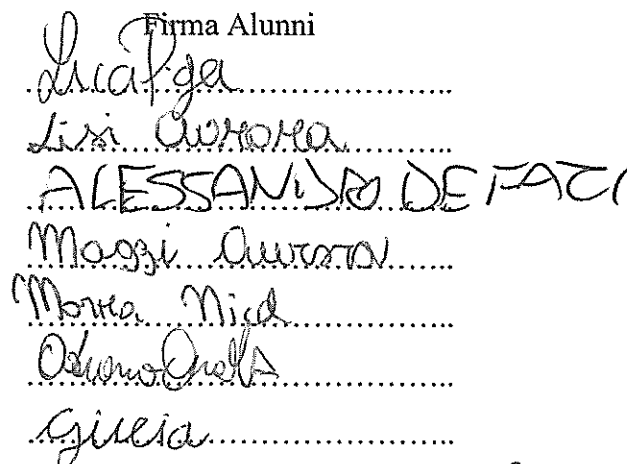 Firma Alunni
Luca
Lisi Aurora
ALESSANDRO DE FAZI
Maggi Aurora
Morra Nicol
Giulia